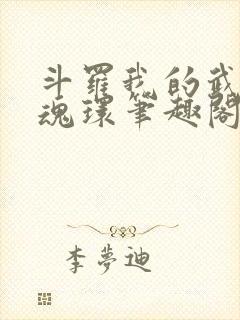 斗羅我的武
魂環筆趣閣
李夢迪